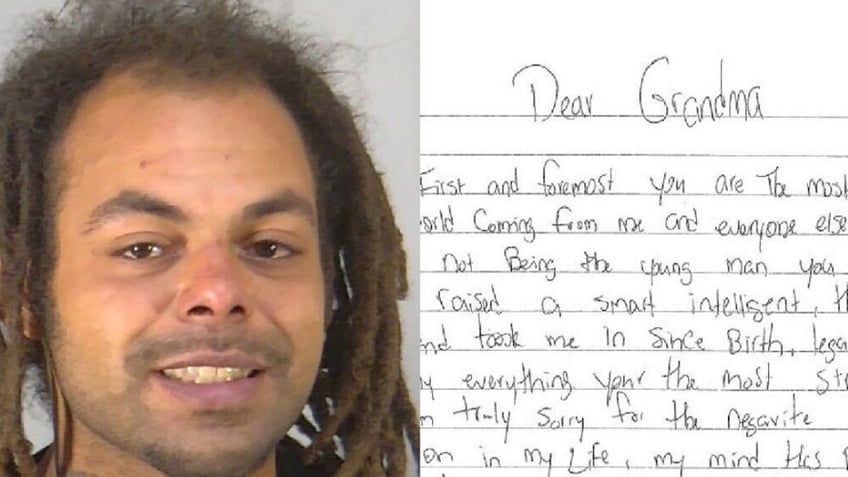 Dear Grandma
First and foremost you are The most
orld Coming from me and everyone else
not Being the young man you
raised a smart intelligent, th
nd toook me In Since Birth, lega
y everything your the most st
m truly Sorry for the negavite
on in my Life, my mind Has